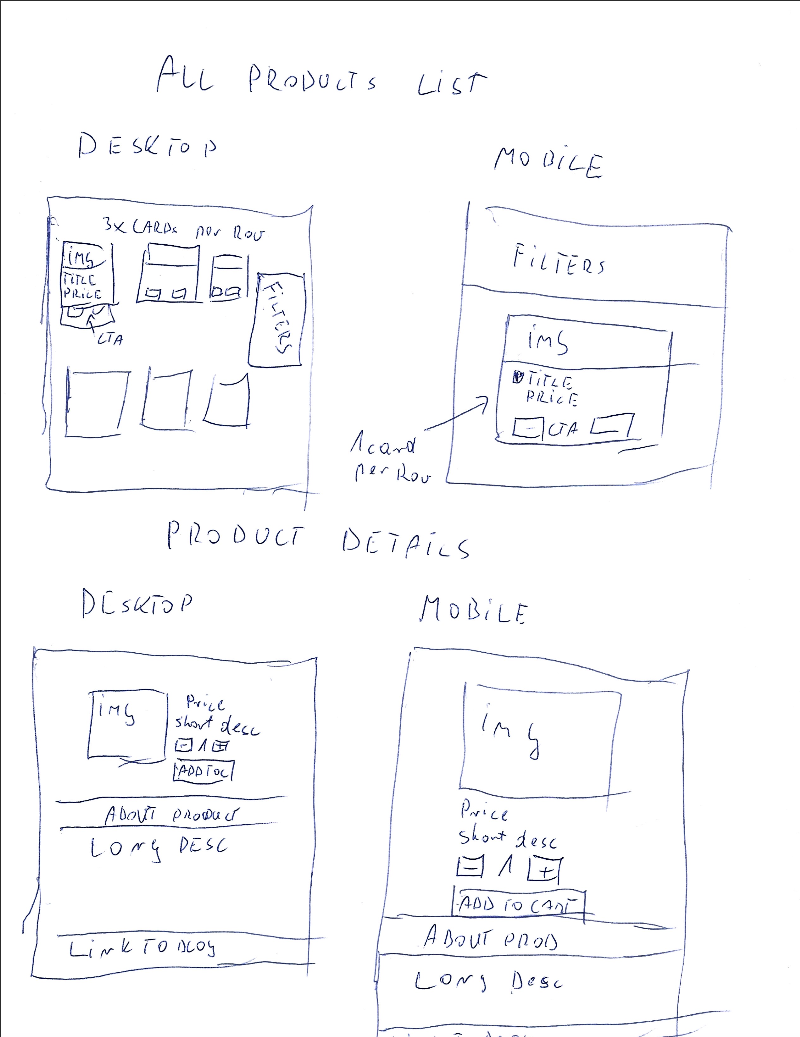 ALL PRODUCTS LIST
DESKTOP
MOBILE
3x CARDs per ROW
img
TITLE
PRICE
CTA
FILTERS
FILTERS
img
TITLE
PRICE
CTA
1 card
per Row
PRODUCT DETAILS
DESKTOP
MOBILE
img
Price
short desc
- 1 +
ADD TO C
ABOUT PRODUCT
LONG DESC
LINK TO BLOG
img
Price
short desc
- 1 +
ADD TO CART
ABOUT PROD
LONG DESC